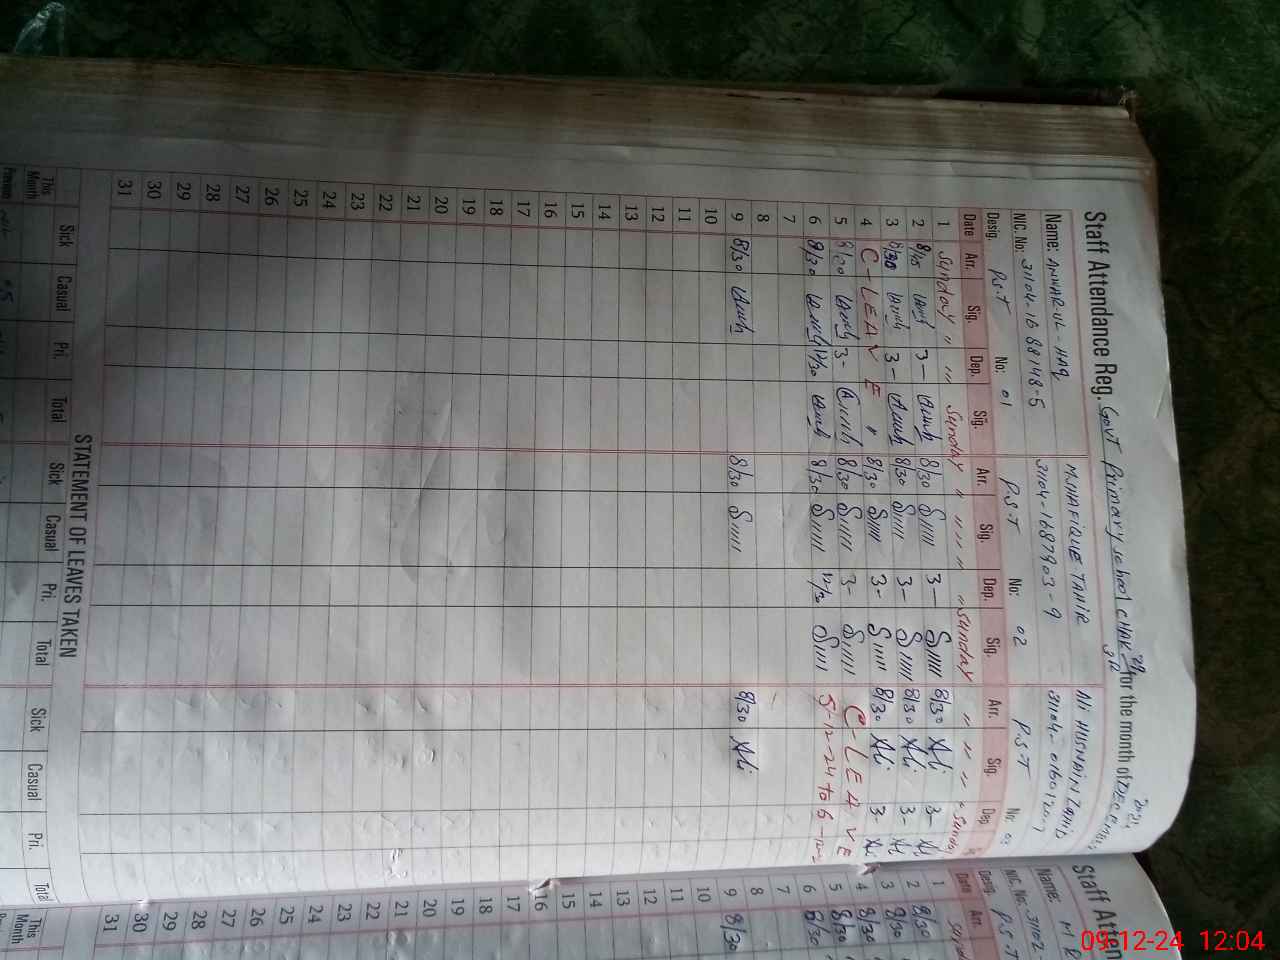 Staff Attendance Reg. Govt Primary school CHAK for the month of December 2024
Name: ANWAR-UL-HAQ M.SHAFIQUE TAHIR Ali HUSNAIN ZAHID
NIC. No: 31104-1688148-5 31104-1687903-9 31104-
Desig. P.S.T No: 01 P.S.T No: 02 P.S.T No: 03
Date Arr. Sig. Dep. Sig. Arr. Sig. Dep. Sig. Arr. Sig. Dep.
1 Sunday " " Sunday " " " " Sunday " " " " Sunday
2 8/15 3- 8/30 3- 8/30 Ali 3- Ali
3 8/30 3- 8/30 3- 8/30 Ali 3- Ali
4 C-LEAVE " 8/30 3- 8/30 Ali 3- Ali
5 8/30 3- 8/30 3- C-LEAVE
6 8/30 12/30 8/30 12/30 5-12-24 to 6-12-
7
8
9 8/30 8/30 8/30 Ali
10
11
12
13
14
15
16
17
18
19
20
21
22
23
24
25
26
27
28
29
30
31
STATEMENT OF LEAVES TAKEN
This Month Sick Casual Pri. Total Sick Casual Pri. Total Sick Casual Pri. Total
Previous
Staff Atten
Name: M
NIC. No. 31102-
Desig. P.S.T
Date Arr.
1
2 8/30
3 8/30
4 8/30
5 8/30
6 8/30
7
8
9 8/30
10
11
12
13
14
15
16
17
18
19
20
21
22
23
24
25
26
27
28
29
30
31
This Month
09-12-24 12:04